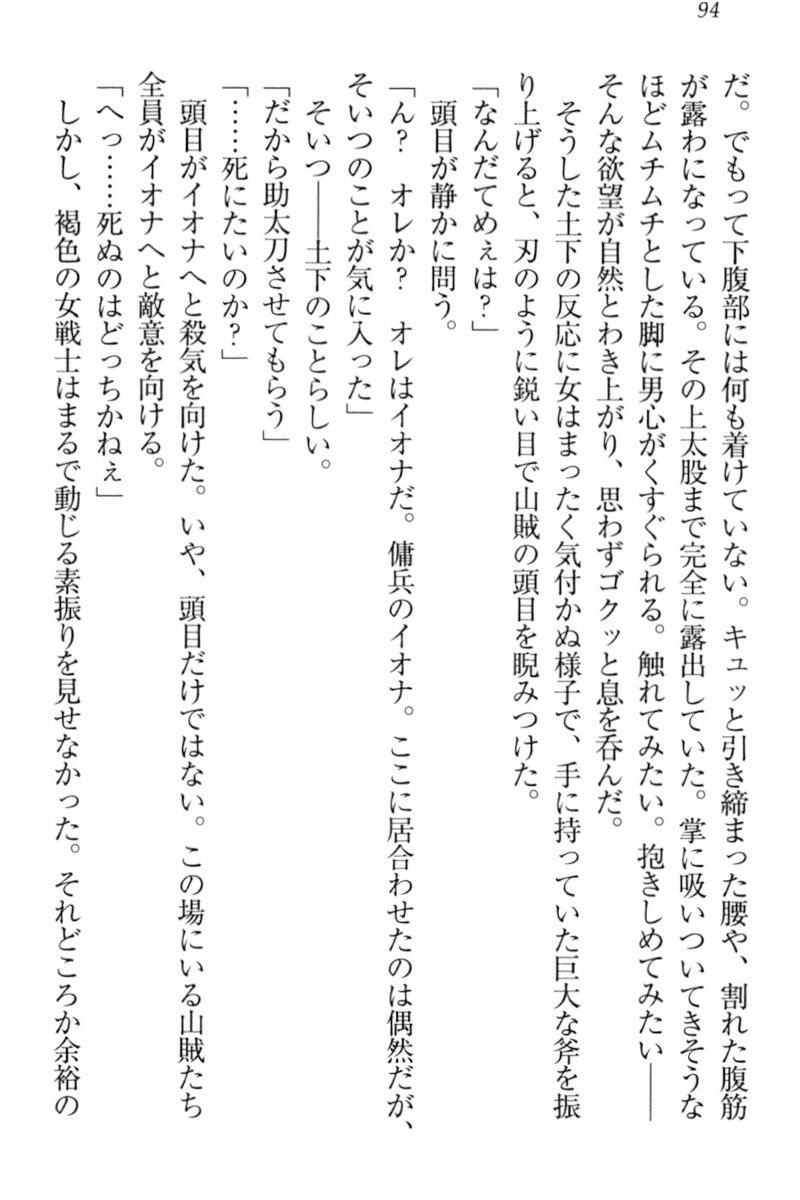 94
だ。でもって下腹部には何も着けていない。キュッと引き締まった腰や、割れた腹筋
が露わになっている。その上太股まで完全に露出していた。掌に吸いついてきそうな
ほどムチムチとした脚に男心がくすぐられる。触れてみたい。抱きしめてみたい――
そんな欲望が自然とわき上がり、思わずゴクッと息を呑んだ。
　そうした土下の反応に女はまったく気付かぬ様子で、手に持っていた巨大な斧を振
り上げると、刃のように鋭い目で山賊の頭目を睨みつけた。
「なんだてめぇは？」
　頭目が静かに問う。
「ん？　オレか？　オレはイオナだ。傭兵のイオナ。ここに居合わせたのは偶然だが、
そいつのことが気に入った」
　そいつ――土下のことらしい。
「だから助太刀させてもらう」
「……死にたいのか？」
　頭目がイオナへと殺気を向けた。いや、頭目だけではない。この場にいる山賊たち
全員がイオナへと敵意を向ける。
「へっ……死ぬのはどっちかねぇ」
　しかし、褐色の女戦士はまるで動じる素振りを見せなかった。それどころか余裕の